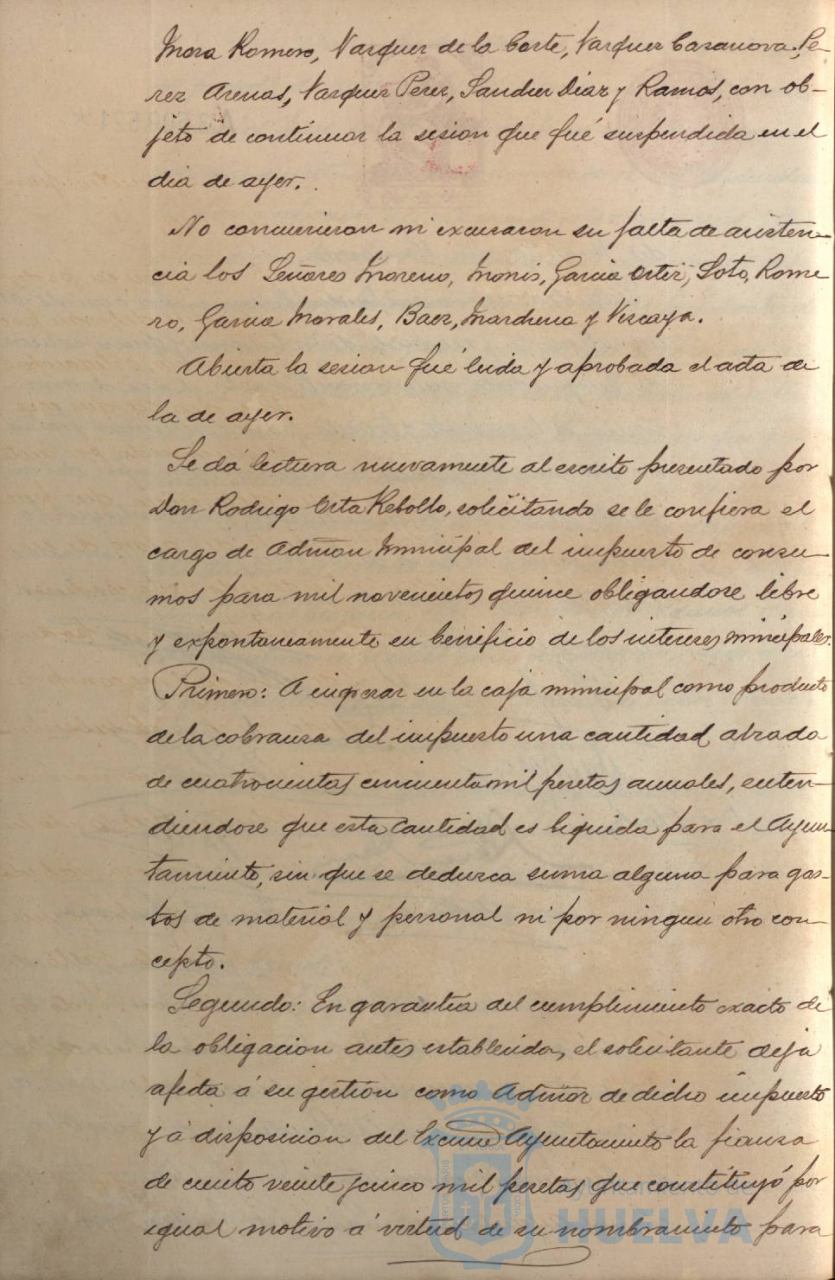 Mora Romero, Vazquez de la Corte, Vazquez Casanova, Pe-
rez Arenas, Vazquez Perez, Sanchez Diaz y Ramos, con ob-
jeto de continuar la sesion que fué suspendida en el
dia de ayer.
No concurrieron ni excusaron su falta de asisten-
cia los Señores Moreno, Monis, Garcia Ortiz, Soto, Rome-
ro, Garcia Morales, Baez, Marchena y Vizcaya.
Abierta la sesion fué leida y aprobada el acta de
la de ayer.
Se dá lectura nuevamente al escrito presentado por
Don Rodrigo Orta Rebollo, solicitando se le confiera el
cargo de Admon Municipal del impuesto de consu-
mos para mil novecientos quince obligandose libre
y expontaneamente en beneficio de los intereses municipales.
Primero: A ingresar en la caja municipal como producto
de la cobranza del impuesto una cantidad alzada
de cuatrocientas cincuenta mil pesetas anuales, enten-
diendose que esta cantidad es liquida para el Ayun-
tamiento, sin que se deduzca suma alguna para gas-
tos de material y personal ni por ningun otro con-
cepto.
Segundo: En garantia del cumplimiento exacto de
la obligacion antes establecida, el solicitante deja
afecta á su gestion como Admor de dicho impuesto
y á disposicion del Excmo Ayuntamiento la fianza
de ciento veinte y cinco mil pesetas que constituyó por
igual motivo á virtud de su nombramiento para
Ayuntamiento de
HUELVA